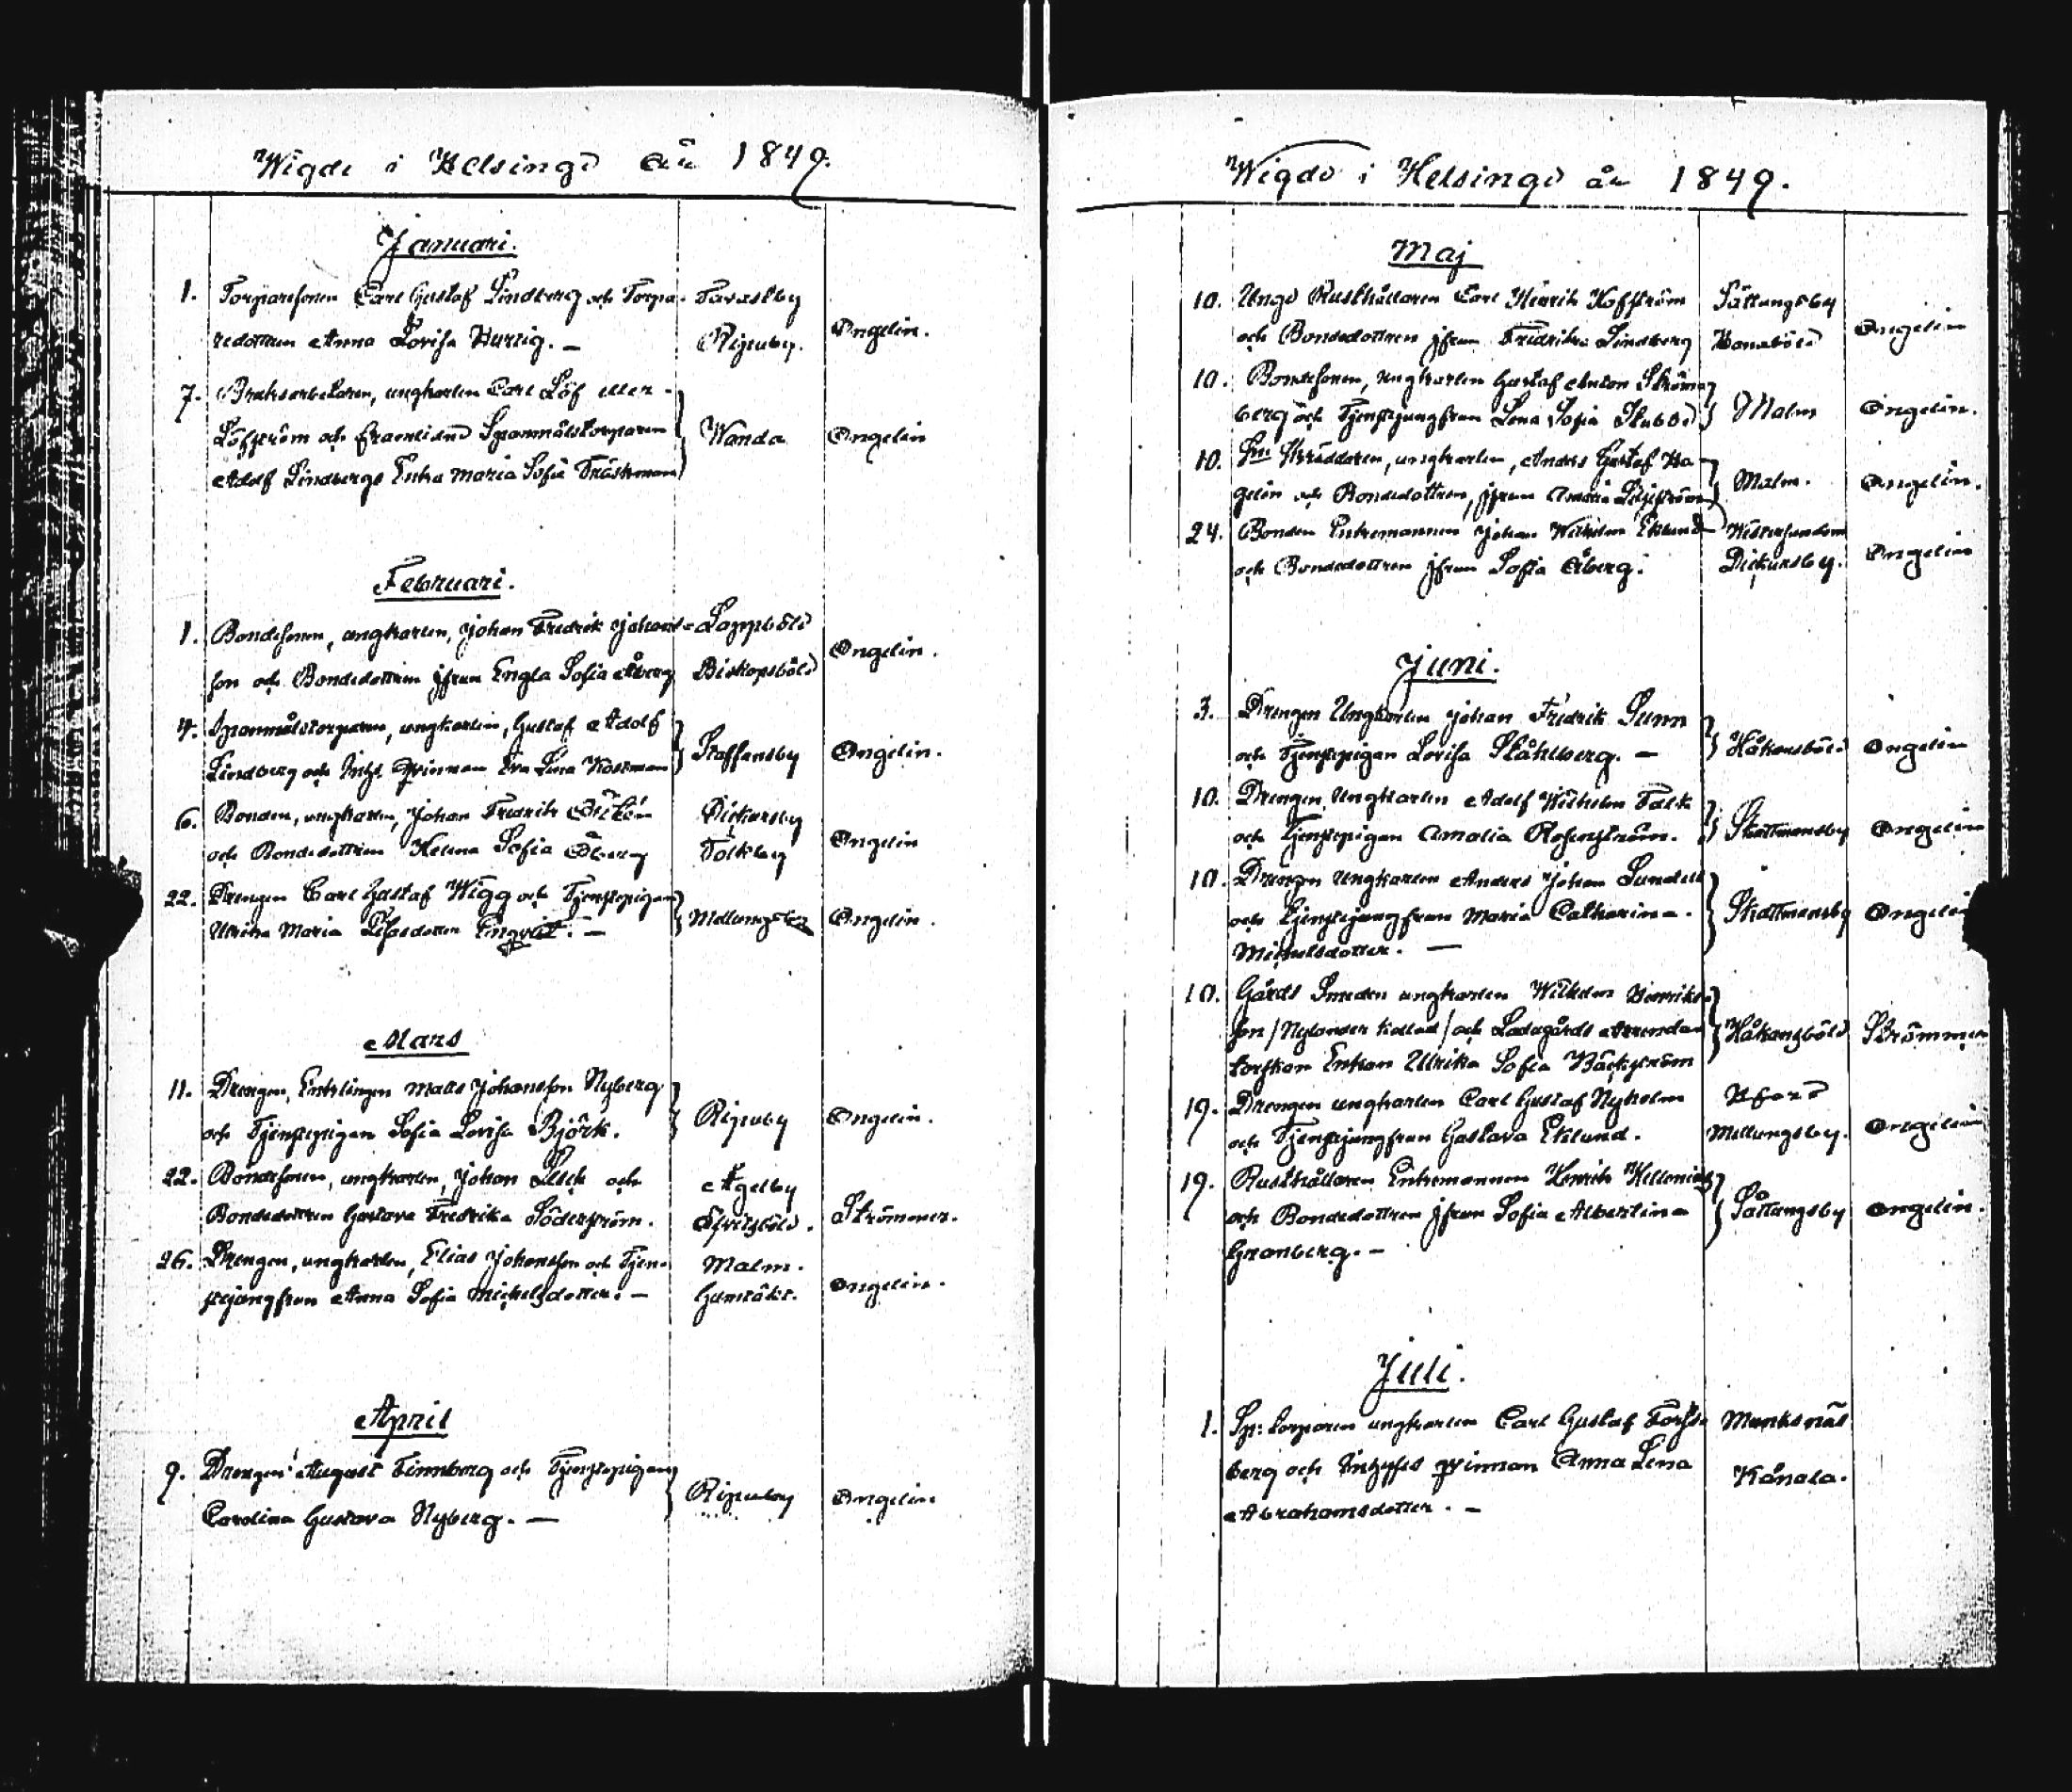 Wigde i Helsinge år 1849.
Januari.
1. Torparesonen Carl Gustaf Lindberg och Torpa- Tavastby
redottren Anna Lovisa Hurtig. — Ripuby. Ongelin.
7. Bruksarbetaren, ungkarlen Carl Löf eller
Löfström och framlidne Spanmålstorparen Wanda Ongelin
Adolf Lindbergs Enka Maria Sofia Träskman
Februari.
1. Bondesonen, ungkarlen, Johan Fredrik Johans- Lappböle
son och Bondedottren jfrun Engla Sofia Åberg Biskopsböle Ongelin.
4. Spanmålstorparen, ungkarlen, Gustaf Adolf
Lindberg och Inhs. qvinnan Eva Lena Kostman Staffansby Ongelin.
6. Bonden, ungkarlen, Johan Fredrik Dickursby
och Bondedottren Helena Sofia Öberg Tolkby Ongelin
22. Drengen Carl Gustaf Wigg och Tjenstepigan
Ulrika Maria Enqvist. — Mellungsby Ongelin.
Mars
11. Drengen, Enklingen Matts Johansson Nyberg
och Tjenstepigan Sofia Lovisa Björk. Ripuby Ongelin.
22. Bondesonen, ungkarlen, Johan och Agelby
Bondedottren Gustava Fredrika Söderström. Strömmer.
26. Drengen, ungkarlen, Elias Johansson och Tjen- Malm.
stejungfrun Anna Sofia Michelsdotter. — Gumtäkt. Ongelin.
April
9. Drengen August Finnberg och Tjenstepigan
Carolina Gustava Nyberg. — Ripuby Ongelin
Wigde i Helsinge år 1849.
Maj
10. Unge Rusthållaren Carl Henrik Hoffström Sottungsby
och Bondedottren jfrun Fredrika Lindberg Ongelin
10. Bondesonen, ungkarlen Gustaf Anton Ström-
berg och Tjenstejungfrun Lena Sofia Stubbe Malm Ongelin.
10. Skräddaren, ungkarlen, Anders Gustaf Ha-
gelin och Bondedottren, jfrun Malm. Ongelin.
24. Bonden Enkemannen Johan Wilhelm Eklund Westersundom
och Bondedottren jfrun Sofia Åberg. Dickursby. Ongelin
Juni.
3. Drengen Ungkarlen Johan Fredrik Sunn
och Tjenstepigan Lovisa Ståhlberg. — Håkansböle Ongelin
10. Drengen Ungkarlen Adolf Wilhelm Falk
och Tjenstepigan Amalia Skattmansby Ongelin
10. Drengen Ungkarlen Anders Johan Lundell
och Tjenstejungfrun Maria Catharina Skattmansby Ongelin
Michelsdotter. —
10. Gårds Smeden ungkarlen Wilhelm Henriks-
son / Nylander kallad / och Ladugårds Arrenda- Håkansböle Strömmer
torskan Enkan Ulrika Sofia Bäckström
19. Drengen ungkarlen Carl Gustaf Nyholm H:fors
och Tjenstejungfrun Gustava Eklund. Mellungsby. Ongelin
19. Rusthållaren Enkemannen Henrik Hellenius
och Bondedottren jfrun Sofia Albertina Sottungsby Ongelin.
Granberg. —
Juli.
1. Sp: torparen ungkarlen Carl Gustaf Forss- Munksnäs
berg och Inhyses qvinnan Anna Lena Kånala.
Abrahamsdotter. —